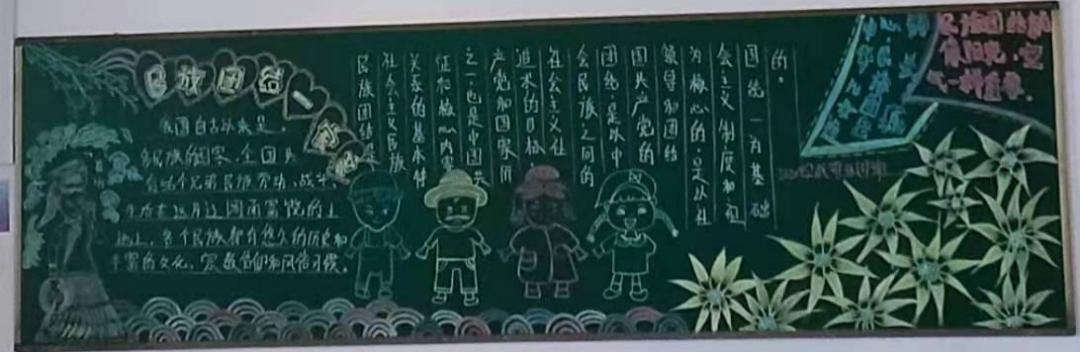 民族团结一家亲
我国自古以来是
多民族的国家,全国共
生活在这片辽阔而富饶的土
地上,各个民族都有悠久的历史和
丰富的文化、宗教信仰和风俗习惯。
民族团结是
社会主义民族
关系的基本特
征和核心内容
之一也是中国共
产党和国家所
追求的目标
在社会主义社
会民族之间的
团结是以中
国共产党的
领导和团结
为核心的;是以社
会主义制度和祖
国统一为基础
的。
民族团结就
像阳光,空
气一样重要。